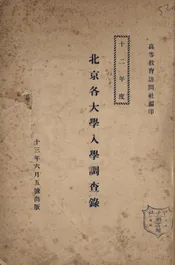 高等教育訪問社編印
十二年度
北京各大學入學調查錄
十三年六月五號出版